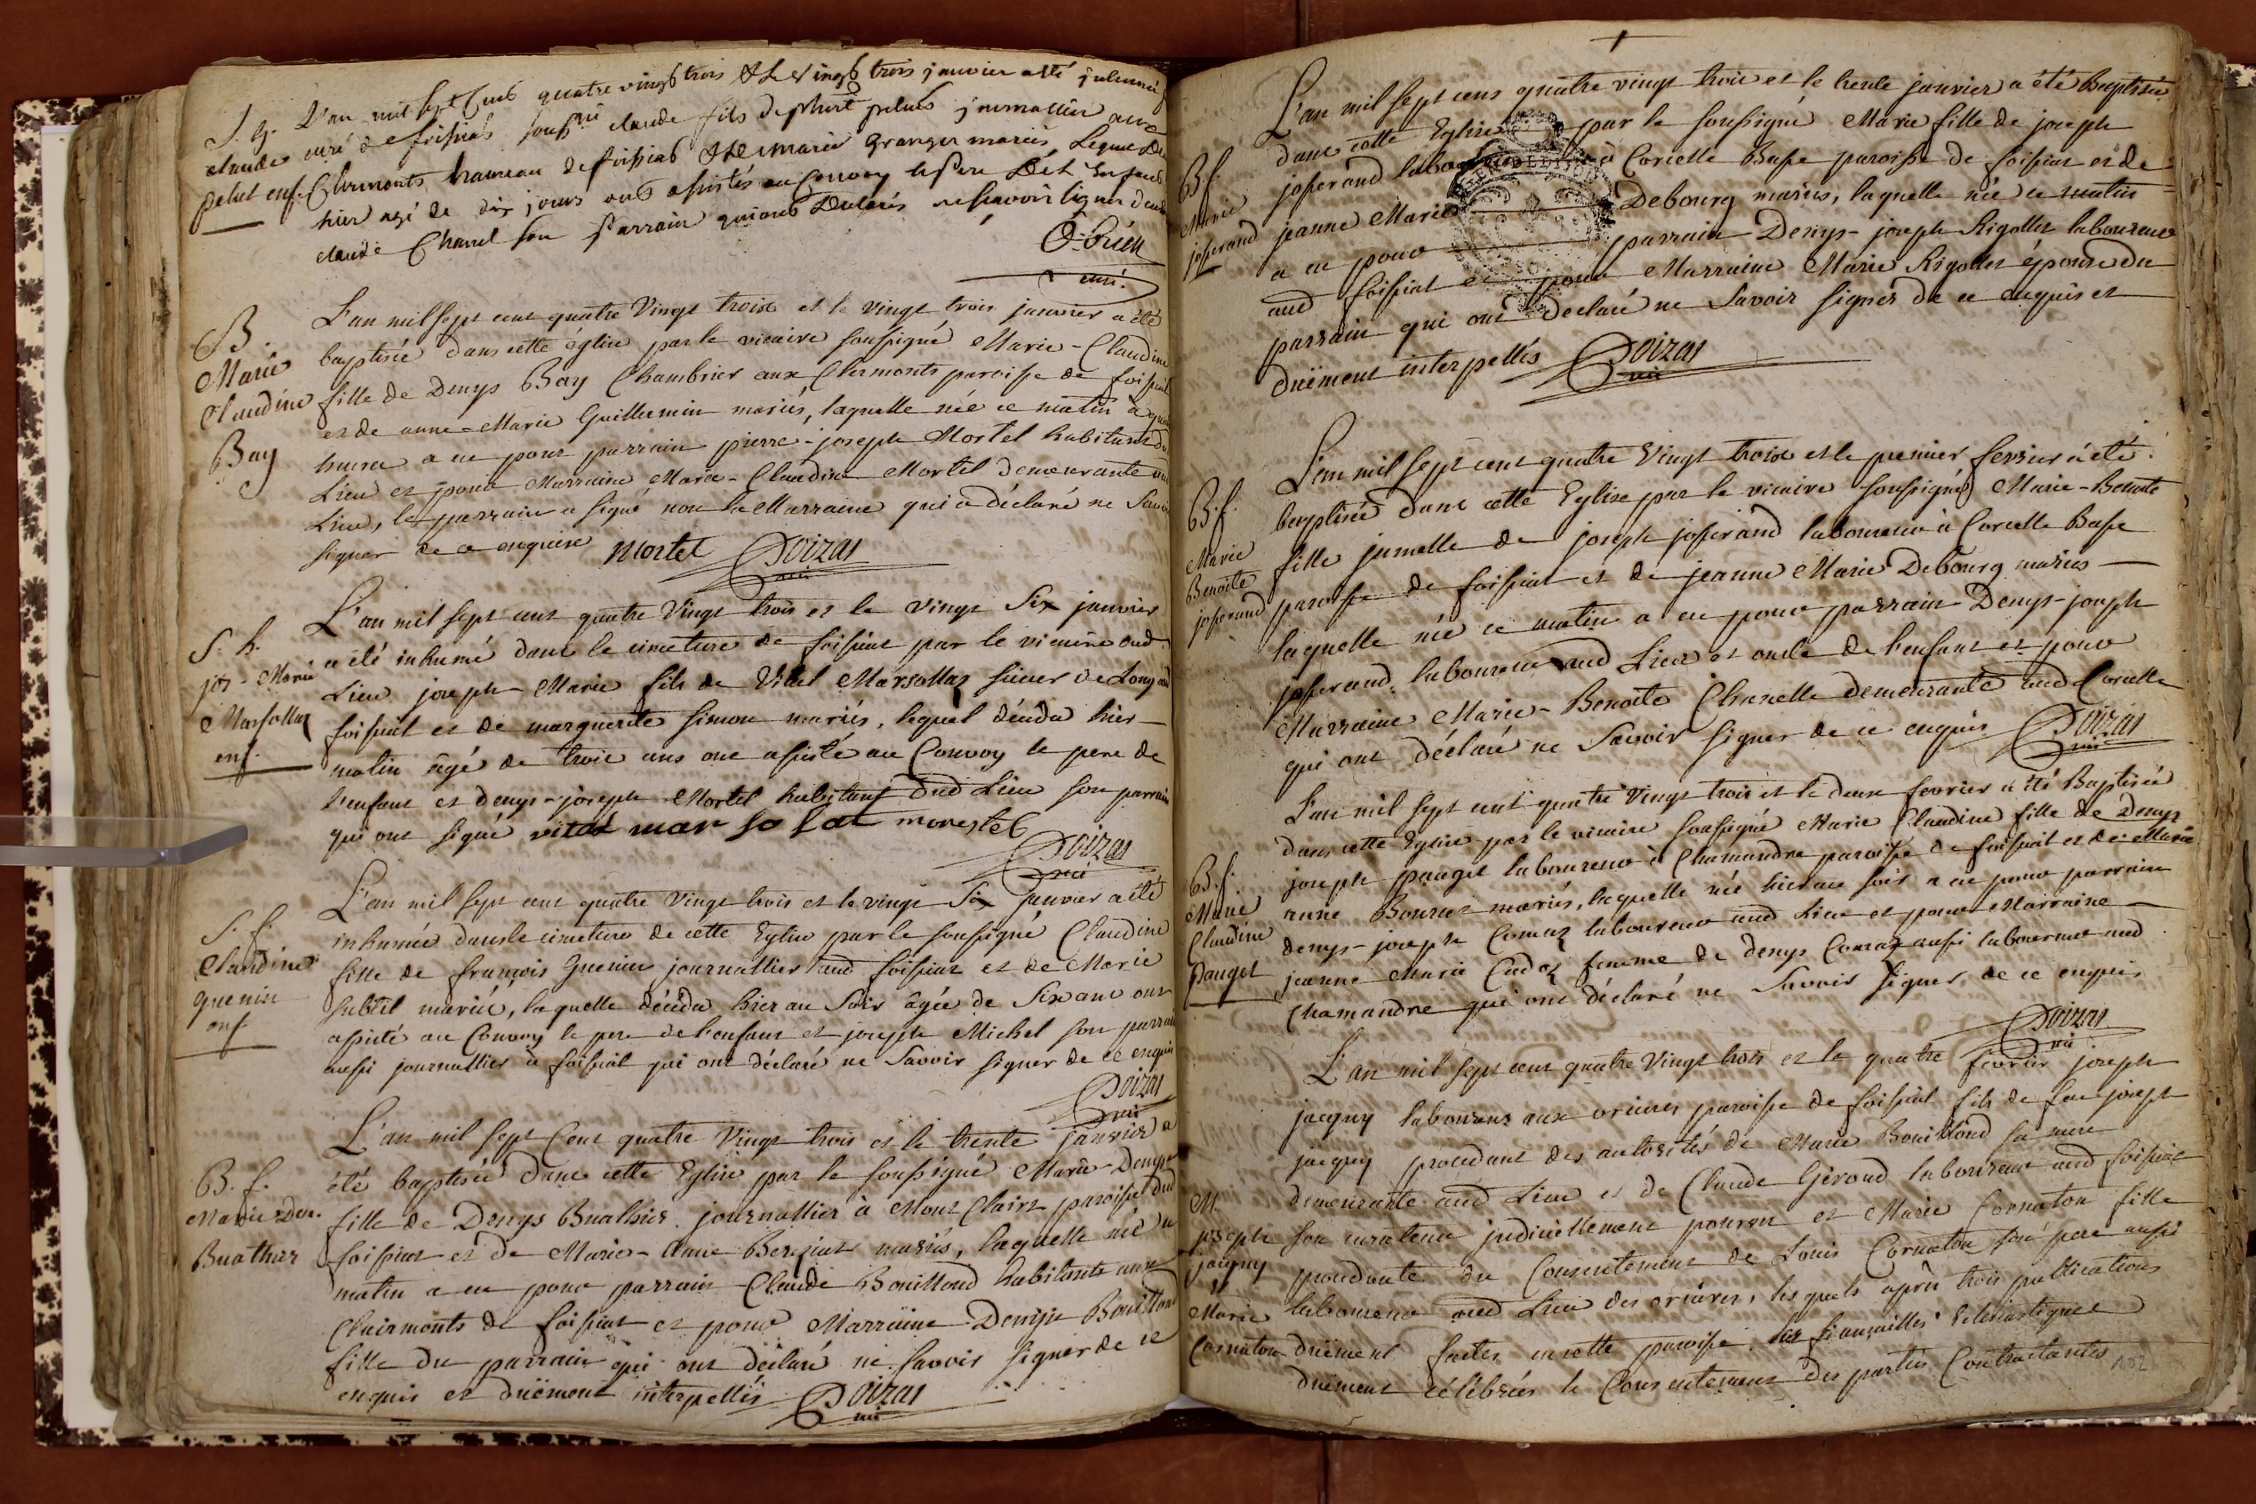 S. g.
claude
pelut enf.
L'an mil sept Cens quatre vingts trois & le vingt trois janvier a été inhumé
curé de foissiat soussigné claude fils de pelus journallier aux
Clermonts hameau de foissiat & de marie Granger mariés, Lequel Dé
hier agé de dix jours ont assistés au Convoy le pere Dét Enfant
claude Charvel son parrain qui ont Déclarés ne sçavoir signer de
curé.
B.
Marie
Claudine
Bay
L'an mil sept cent quatre Vingt trois et le vingt trois janvier a été
baptisée dans cette église par le vicaire soussigné Marie-Claudine
fille de Denys Bay Chambrier aux Clermonts paroisse de foissiat
et de anne-Marie Guillemin mariés, laquelle née ce matin à
heures a eu pour parrain pierre-joseph Mortel habitant du
Lieu et pour Marraine Marie-Claudine Mortel demeurante aud
Lieu, le parrain a signé non la Marraine qui a déclaré ne Savoir
signer de ce enquise Mortel Poizat
vic
S. h.
jos-Marie
Marsollaz
enf.
L'an mil sept cent quatre Vingt trois et le vingt Six janvier
a été inhumé dans le cimetiere de foissiat par le vicaire dud
Lieu joseph-Marie fils de Vital Marsollaz sieur de Long
foissiat et de marguerite simon mariés, lequel décéda hier
matin âgé de trois ans ont assisté au Convoy le pere de
l'enfant et denys-joseph Mortel habitant dud Lieu son parrain
qui ont signé vital mar so lat morestel
Poizat
vic
S. f.
Claudine
quenin
enf
L'an mil sept cent quatre Vingt trois et le vingt Six janvier a été
inhumée dans le cimetiere de cette Eglise par le soussigné Claudine
fille de françois Quenin journallier aud foissiat et de Marie
subtil mariés, laquelle décéda hier au Soir âgée de Six ans ont
assisté au Convoy le pere de l'enfant et joseph Michel son parrain
aussi journallier à foissiat qui ont déclaré ne Savoir signer de ce enquis
Poizat
vic
B. f.
Marie-Den.
Buathier
L'an mil sept Cent quatre Vingt trois et le trente janvier a
été baptisée dans cette Eglise par le soussigné Marie-Denyse
fille de Denys Buathier journallier à Mont Clairs paroisse dud
foissiat et de Marie-Anne Berziat mariés, laquelle née ce
matin a eu pour parrain Claude Bouilloud habitants aux
Clairmonts de foissiat et pour Marraine Denyse Bouilloud
fille du parrain qui ont déclaré ne savoir signer de ce
enquis et duëment interpellés Poizat
vic
B. f.
Marie
josserand
L'an mil sept cens quatre vingt trois et le trente janvier a été Baptisée
dans cette Eglise par le soussigné Marie fille de joseph
josserand laboureur à Corcelle Basse paroisse de foissiat et de
jeanne Marie Debourg mariés, laquelle née ce matin
a eu pour parrain Denys-joseph Rigollet laboureur
aud foissiat et pour Marraine Marie Rigollet épouse du
parrain qui ont declaré ne Savoir signer de ce enquis et
duëment interpellés Poizat
vic
B. f.
Marie
Benoite
josserand
L'an mil sept cent quatre Vingt trois et le premier fevrier a été
baptisée dans cette Eglise par le vicaire soussigné Marie-Benoite
fille jumelle de joseph josserand laboureur à Corcelle Basse
paroisse de foissiat et de jeanne Marie Debourg mariés
laquelle née ce matin a eu pour parrain Denys-joseph
josserand laboureur aud Lieu et oncle de l'enfant et pour
Marraine Marie-Benoite Chanelle demeurante aud Corcelle
qui ont déclaré ne Savoir signer de ce enquis Poizat
vic
B. f.
Marie
Claudine
Pauget
L'an mil sept cent quatre Vingt trois et le deux fevrier a été Baptisée
dans cette Eglise par le vicaire soussigné Marie Claudine fille de Denys
joseph pauget laboureur à Chamandre paroisse de foissiat et de Marie
anne Bourcet mariés, laquelle née hier au soir a eu pour parrain
denys-joseph Comaz laboureur aud Lieu et pour Marraine
jeanne Marie Cadoz femme de denys Comaz aussi laboureur aud
Chamandre qui ont déclaré ne Savoir signer de ce enquis
Poizat
vic
M.
joseph
jacguy
&
Marie
Cornaton
L'an mil sept cent quatre Vingt trois et le quatre fevrier joseph
jacguy laboureur aux oriares paroisse de foissiat fils de feu joseph
jacguy procedant des autorités de Marie Bouilloud sa mere
demeurante aud Lieu et de Claude Géroud laboureur aud foissiat
son curateur judiciellement pourvu et Marie Cornaton fille
procedante du Consentement de Louis Cornaton son pere aussi
laboureur aud Lieu des oriares, les quels aprés trois publications
duëment faites en cette paroisse, les fiançailles Eclesiastiques
duëment célébrées le Consentement des parties Contractantes
102